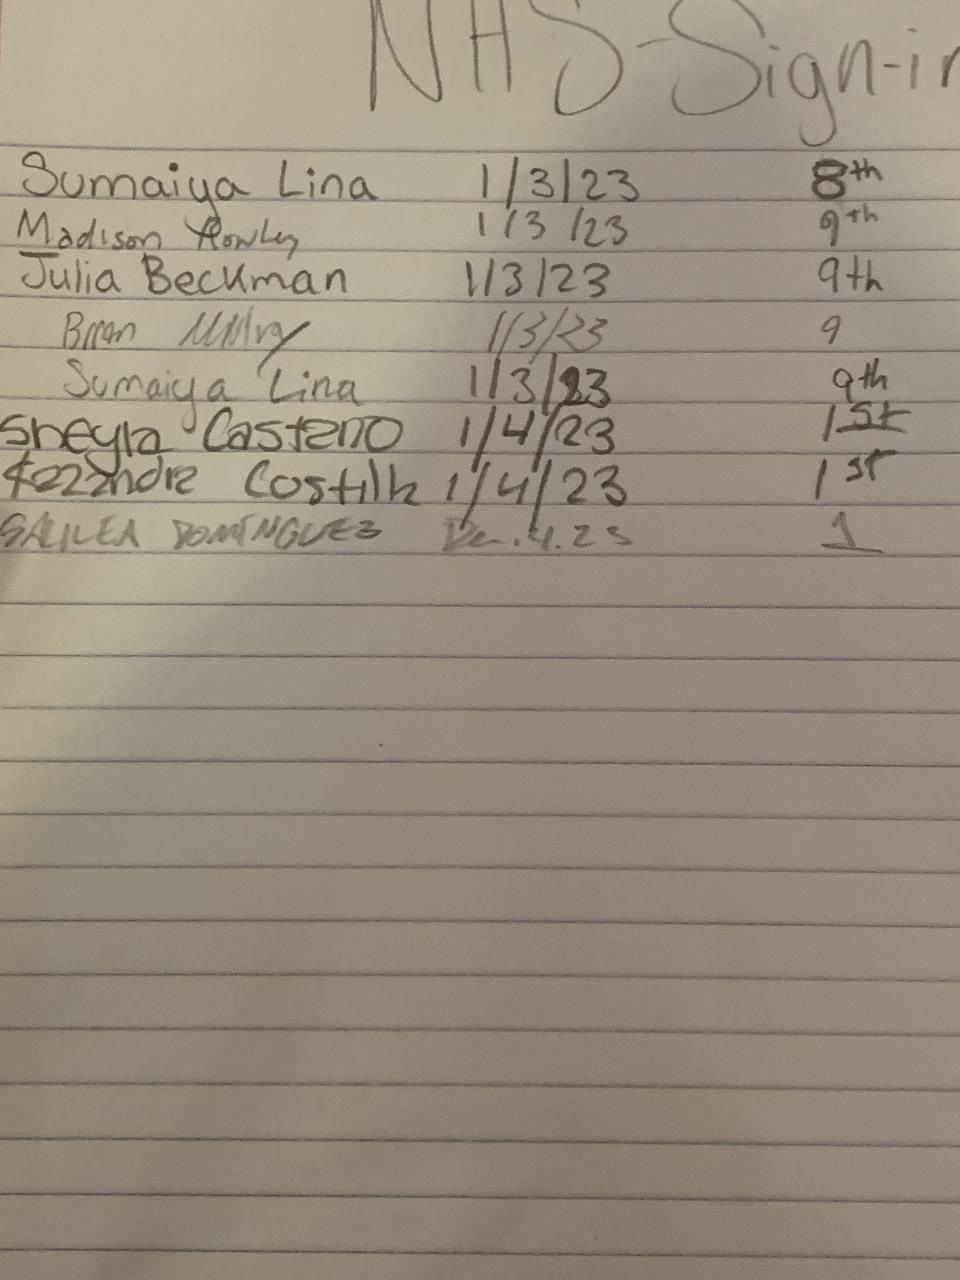 NHS-Sign-in
Sumaiya Lina 1/3/23 8th
Madison Rowley 1/3/23 9th
Julia Beckman 1/3/23 9th
Brian 1/3/23 9
Sumaiya Lina 1/3/23 9th
Sheyla Casteno 1/4/23 1st
1/4/23 1st
GALILEA DOMINGUEZ 4.23 1